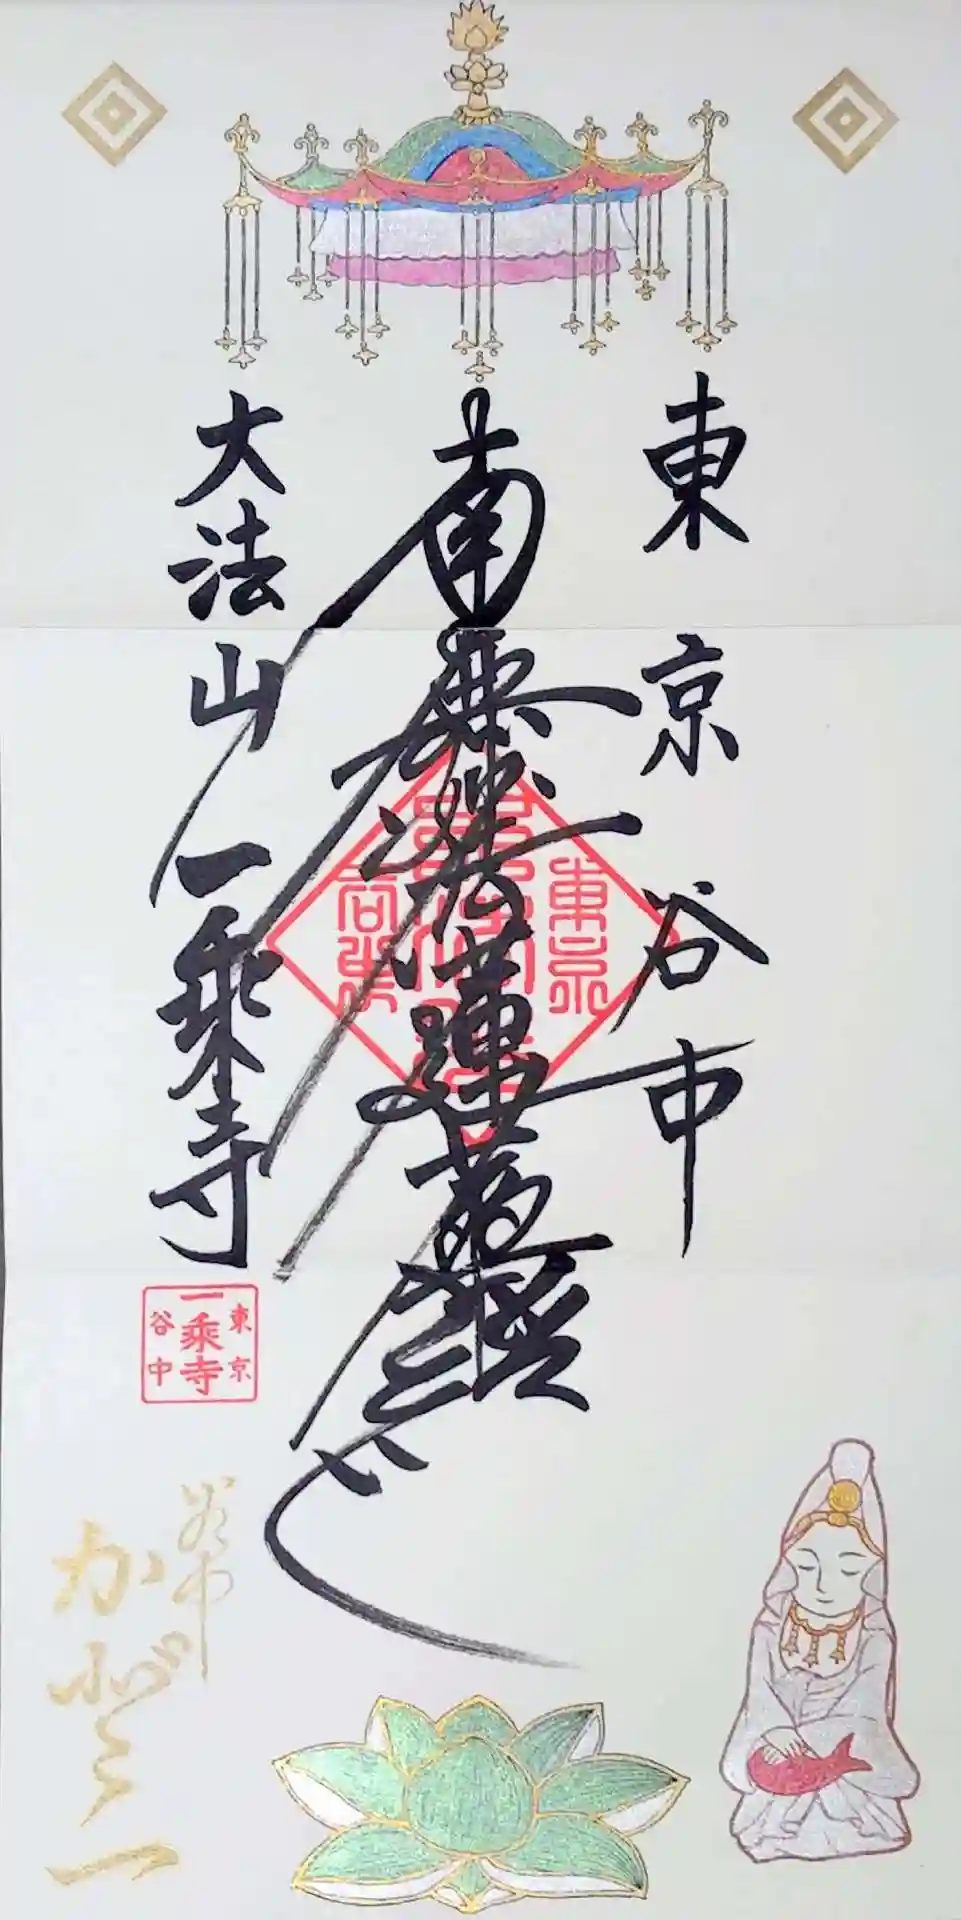 東京谷中
南無妙法蓮華経
大法山一乗寺
東京
一乗寺
谷中
谷中